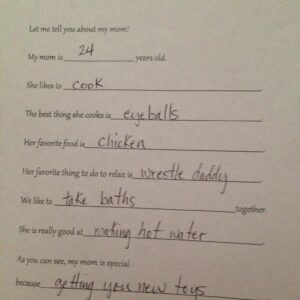 Let me tell you about my mom!
My mom is 24 years old.
She likes to cook
The best thing she cooks is eyeballs
Her favorite food is chicken
Her favorite thing to do to relax is wrestle daddy
We like to take baths together.
She is really good at making hot water
As you can see, my mom is special
because getting you new toys